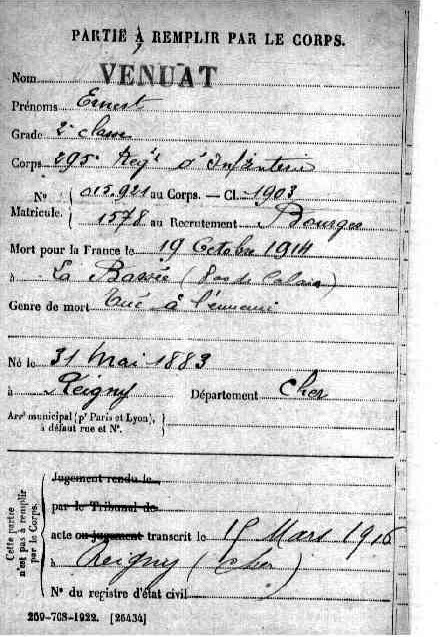 PARTIE À REMPLIR PAR LE CORPS.
Nom VENUAT
Prénoms Ernest
Grade 2e classe
Corps 295e Regt d'Infanterie
No 015.921 au Corps. — Cl. 1903
Matricule. 1578 au Recrutement Bourges
Mort pour la France le 19 Octobre 1914
à La Bassée (Pas de Calais)
Genre de mort tué à l'ennemi
Né le 31 Mai 1883
à Reigny Département Cher
Arrt municipal (pr Paris et Lyon),
à défaut rue et No.
Cette partie
n'est pas à remplir
par le Corps.
Jugement rendu le
par le Tribunal de
acte ou jugement transcrit le 15 Mars 1916
à Reigny (Cher)
No du registre d'état civil
269-708-1922. [26434]